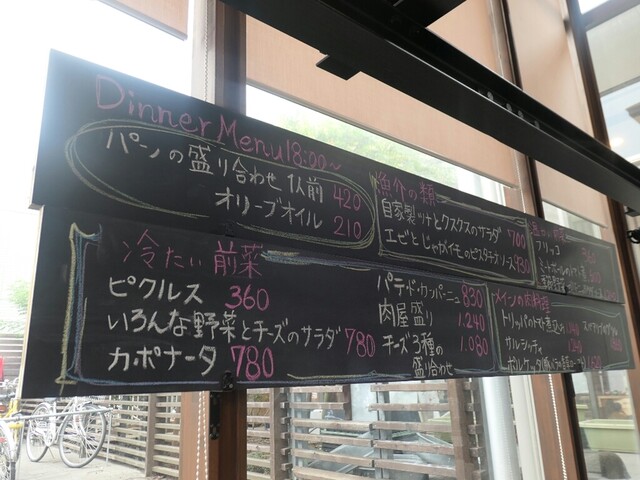 Dinner Menu 18:00~
パンの盛り合わせ 1人前 420
オリーブオイル 210
冷たい前菜
ピクルス 360
いろんな野菜とチーズのサラダ 780
カポナータ 780
パテ・ド・カンパーニュ 830
肉屋盛り 1.240
チーズ3種の盛り合わせ 1.080
魚介の類
自家製ツナとクスクスのサラダ 700
エビとじゃがイモのピスタチオソース 930
フリッコ
メインのお料理
トリッパのトマト煮込み
サルシッチャ